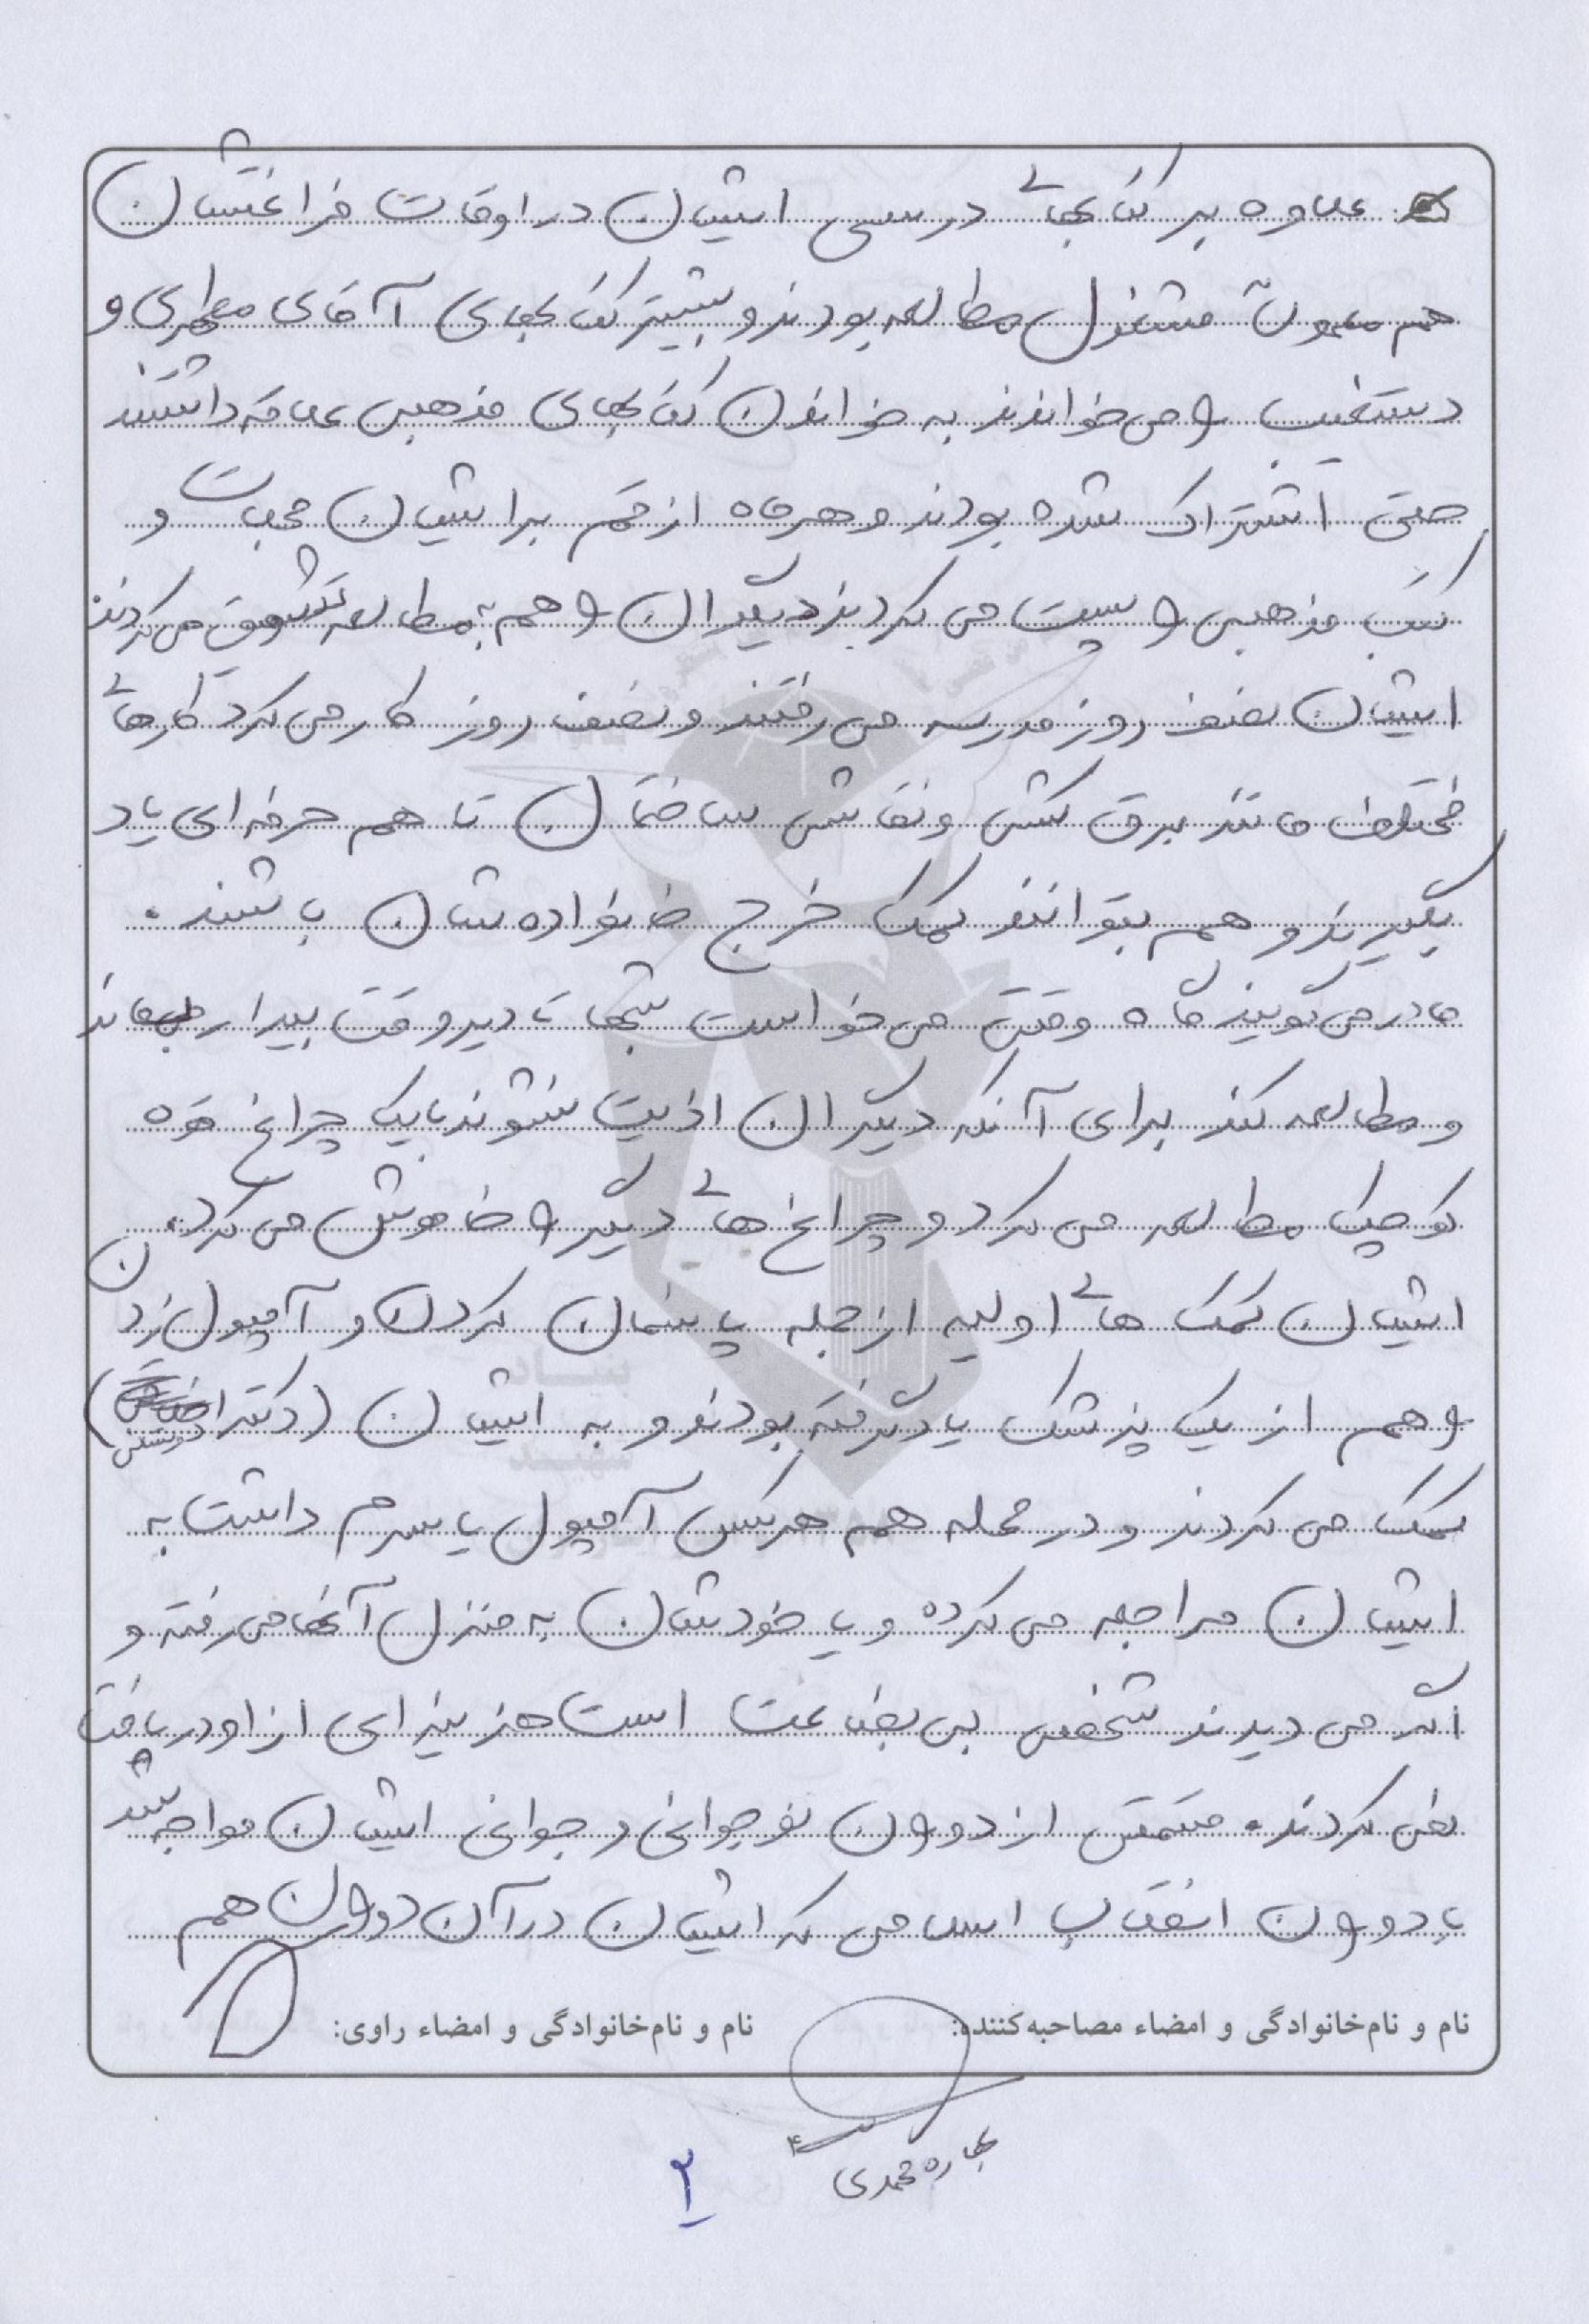 علاوه بر کتابهای درسی ایشان در اوقات فراغتشان
هم معمولاً مشغول مطالعه بودند و بیشتر کتابهای آقای مطهری و
دستغیب را می‌خواندند به خواندن کتابهای مذهبی علاقه داشتند
حتی اشتراک شده بودند و هر ماه از قم برایشان مجلات و
کتب مذهبی را پست می کردند دیگران را هم به مطالعه تشویق می کردند
ایشان نصف روز مدرسه می رفتند و نصف روز کار می کرد کارهای
مختلف مانند برق کشی و نقاشی ساختمان تا هم حرفه ای یاد
بگیرند و هم بتوانند کمک خرج خانواده شان باشند.
مادر می گویند گاه وقتی می خواست شبها تا دیر وقت بیدار بماند
و مطالعه کند برای آنکه دیگران اذیت نشوند با یک چراغ قوه
کوچک مطالعه می کرد و چراغ های دیگر را خاموش می کرد.
ایشان کمک های اولیه از جمله پانسمان کردن و آمپول زدن
را هم از یک پزشک یاد گرفته بودند و به ایشان (دکتر
کمک می کردند و در محله هم هر کس آمپول یا سرم داشت به
ایشان مراجعه می کرده و یا خودشان به منزل آنها می رفته و
اگر می دیدند شخص بی بضاعت است هزینه ای از او دریافت
نمی کردند. قسمتی از دوران نوجوانی و جوانی ایشان مواجه شد
با دوران انقلاب اسلامی که ایشان در آن دوران هم
نام و نام‌خانوادگی و امضاء مصاحبه‌کننده: نام و نام‌خانوادگی و امضاء راوی:
بهاره محمدی
۲